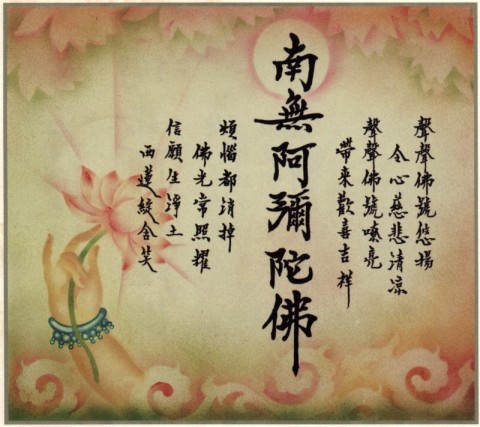 聲聲佛號悠揚
令心慈悲清凉
聲聲佛號嘹亮
帶來歡喜吉祥
南無阿彌陀佛
煩惱都消掉
佛光常照耀
信願生淨土
西蓮綻含笑